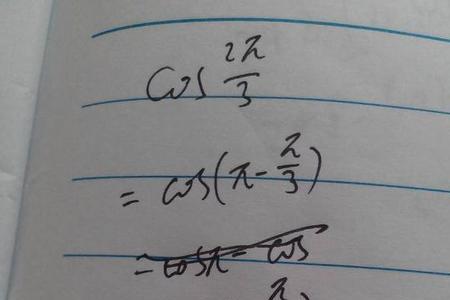 cos 2π/3
= cos(π - π/3)
= cosπ - cos
π